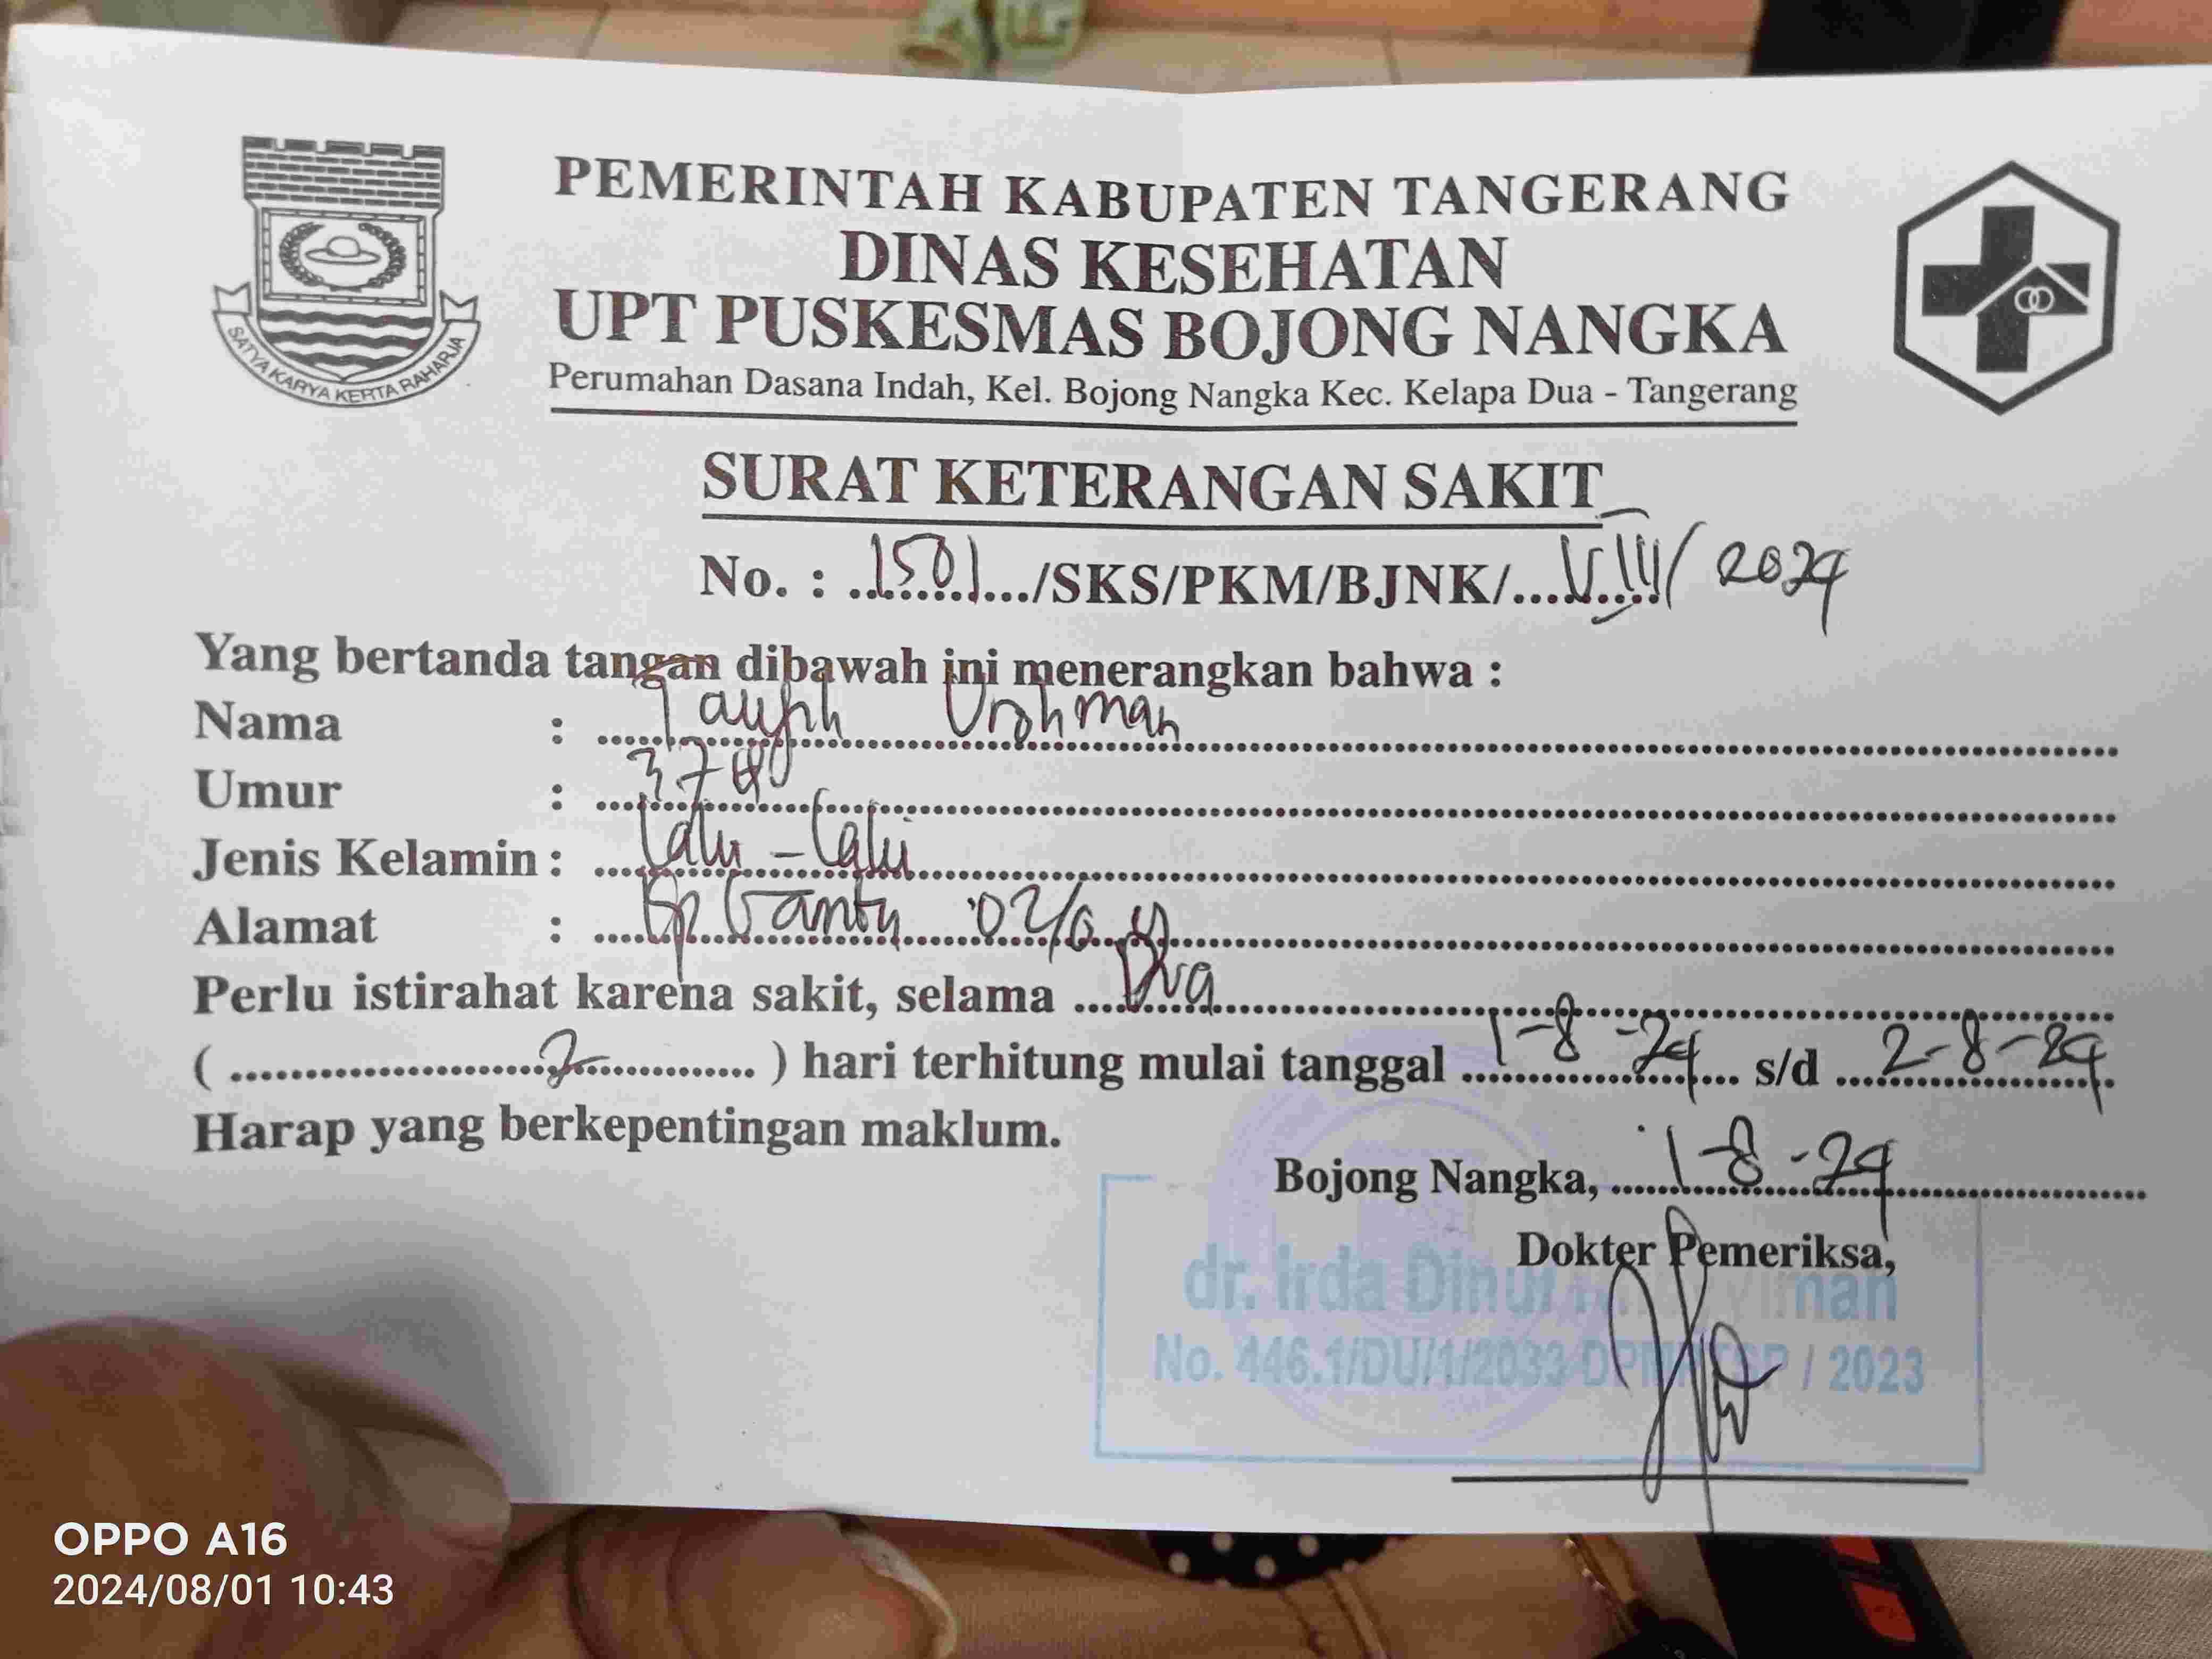 PEMERINTAH KABUPATEN TANGERANG
DINAS KESEHATAN
UPT PUSKESMAS BOJONG NANGKA
Perumahan Dasana Indah, Kel. Bojong Nangka Kec. Kelapa Dua - Tangerang
SATYA KARYA KERTA RAHARJA
SURAT KETERANGAN SAKIT
No. : 1501/SKS/PKM/BJNK/VIII/ 2024
Yang bertanda tangan dibawah ini menerangkan bahwa :
Nama : Taufik Urohman
Umur : 37
Jenis Kelamin : Laki - Laki
Alamat : Kp 02/
Perlu istirahat karena sakit, selama Dua
( 2 ) hari terhitung mulai tanggal 1-8-24 s/d 2-8-24
Harap yang berkepentingan maklum.
Bojong Nangka, 1-8-24
Dokter Pemeriksa,
dr. Irda Dinul
No. 446.1/DU/1/2033 / 2023
OPPO A16
2024/08/01 10:43